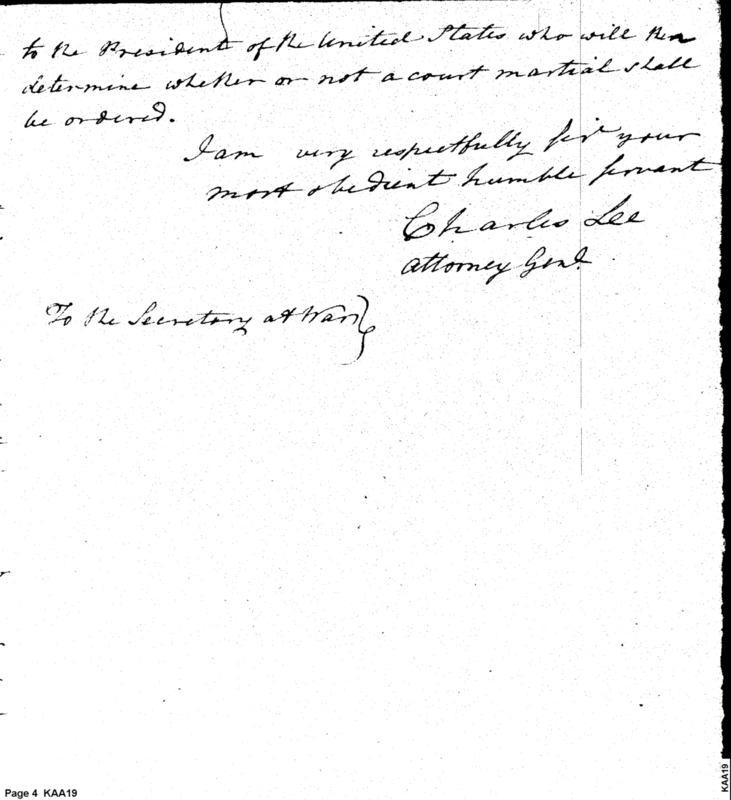 to the President of the United States who will then
determine whether or not a court martial shall
be ordered.
I am very respectfully sir your
most obedient humble servant
Charles Lee
Attorney Genl.
To the Secretary at War}
Page 4 KAA19
KAA19